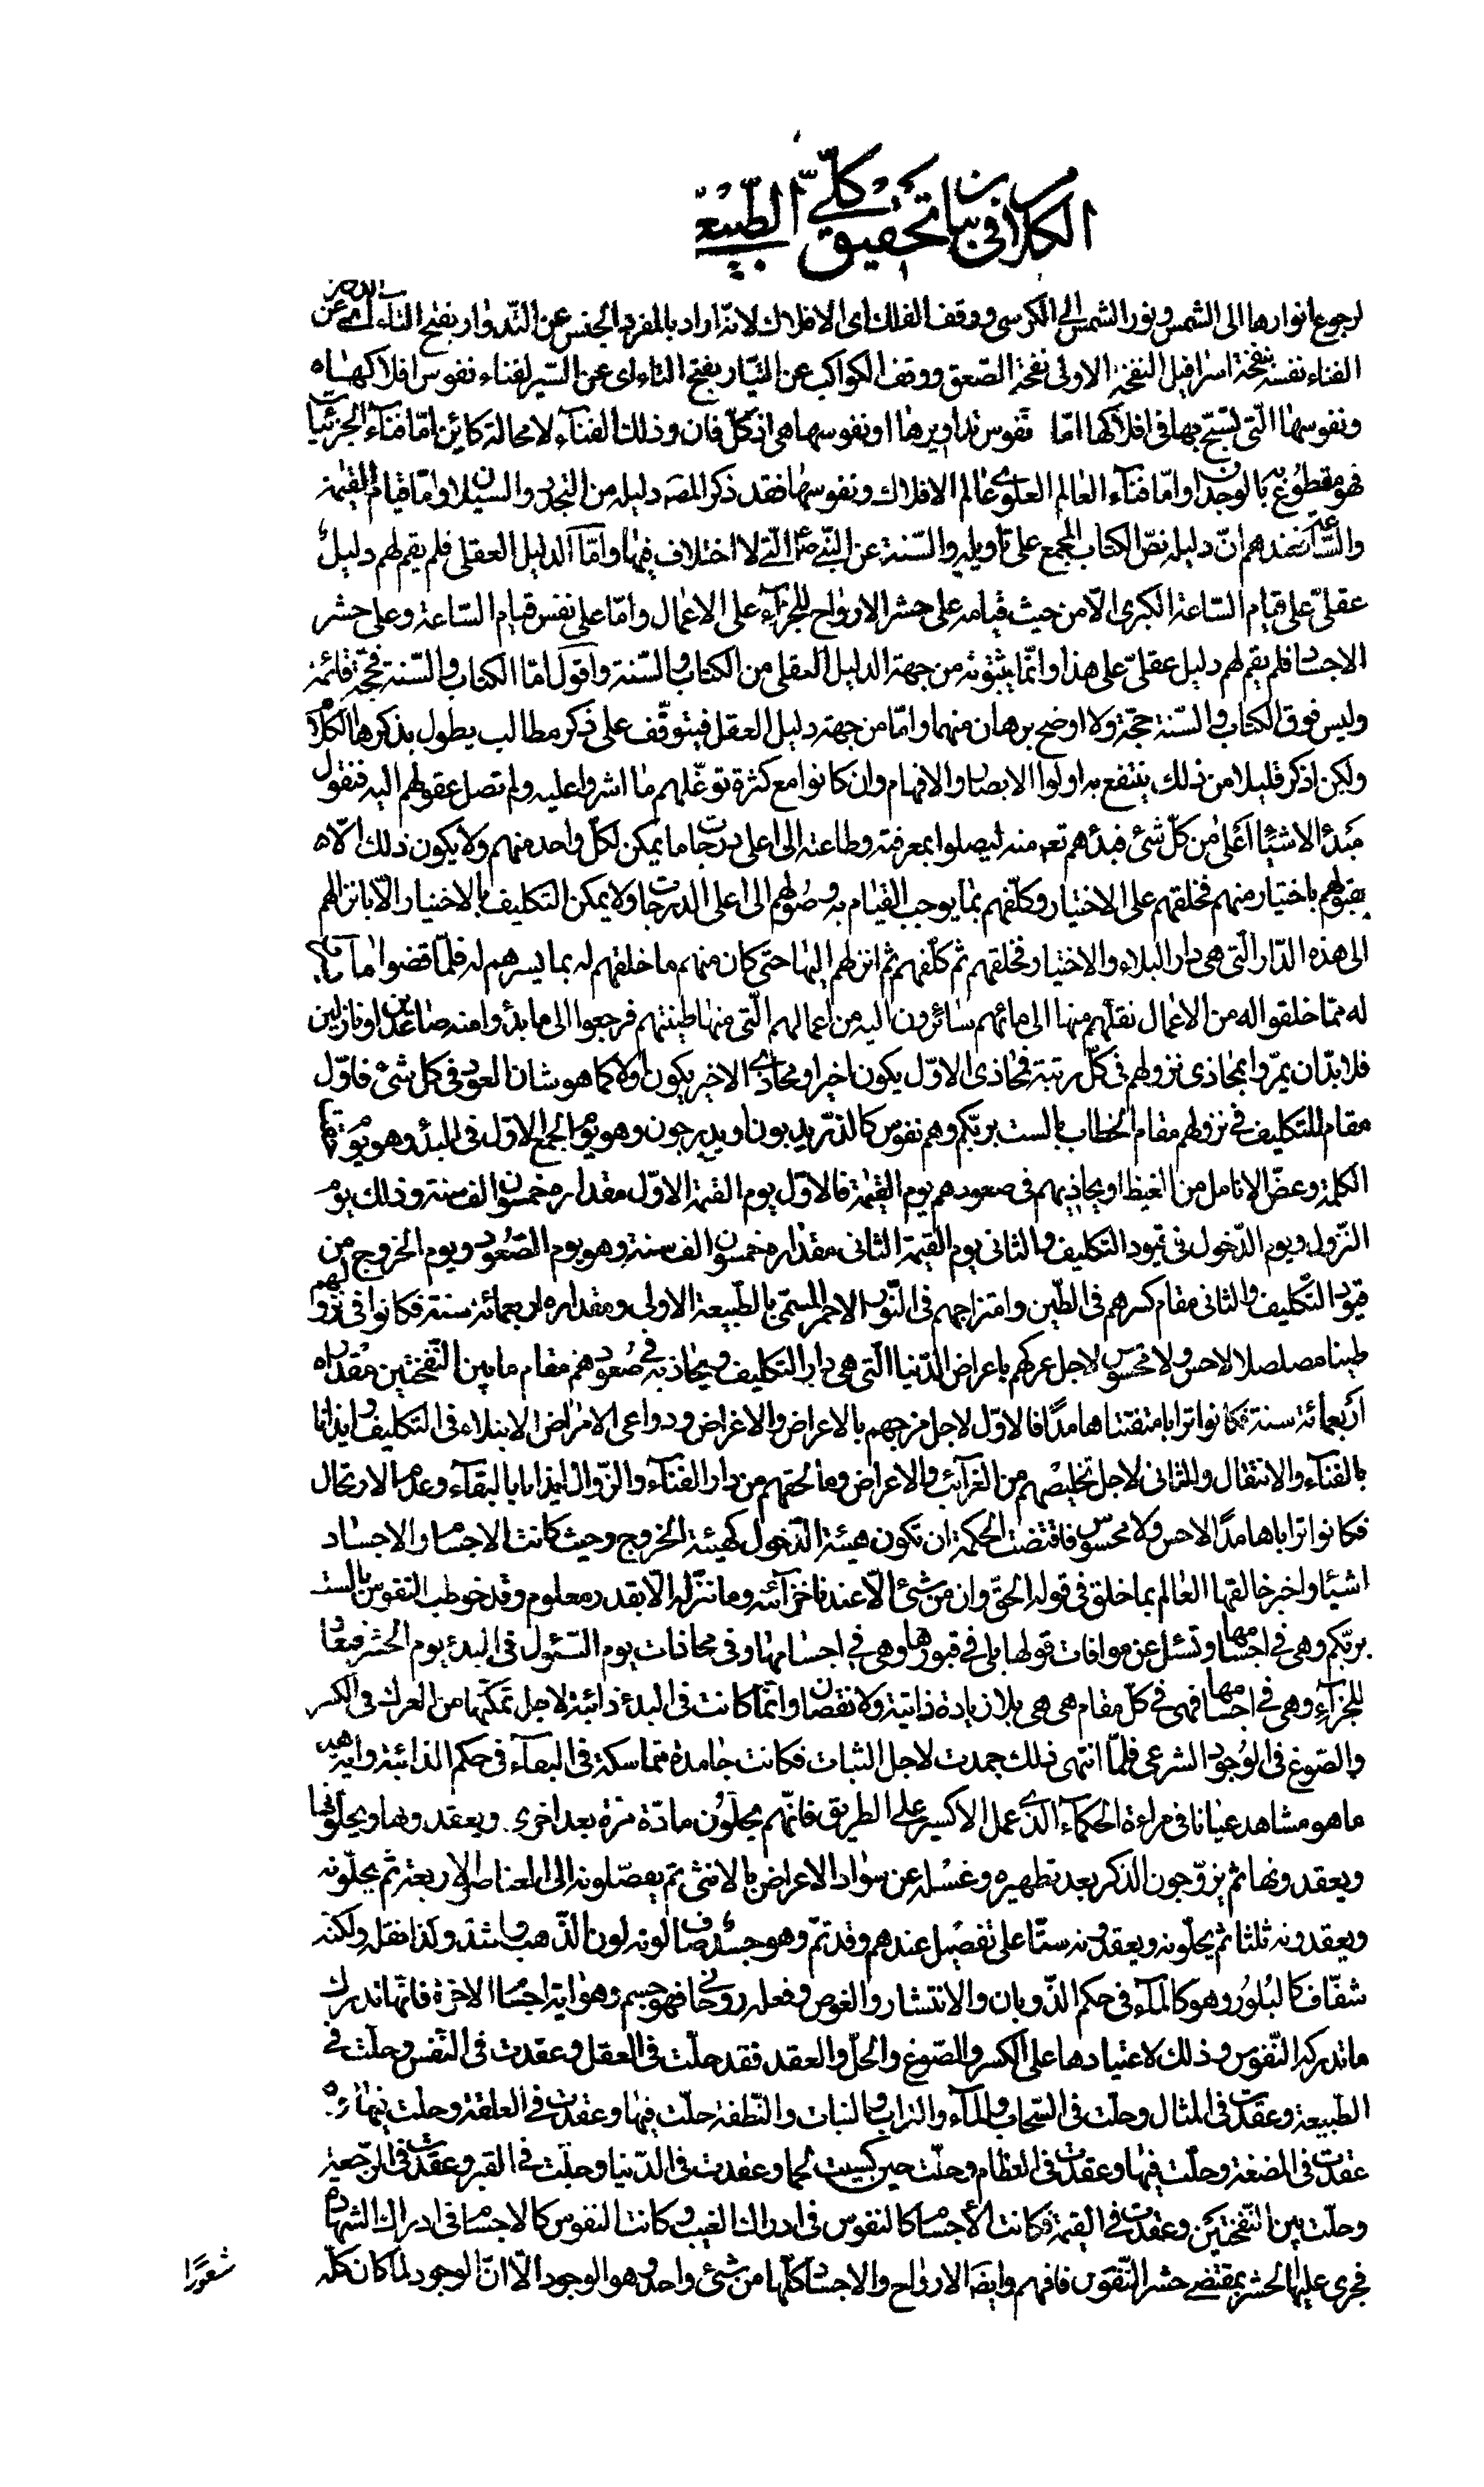 الكلام فى بيان تحقيق كلّى الطّبيعة
لرجوع انوارها الى الشمس ونور الشمس الى الكرسى ووقف الفلك اى الافلاك لانه اراد بالمفرد الجنس عن التّدوار بفتح التاء اى عن
الفناء نفسه بنفخة اسرافيل النفخة الاولى نفخة الصّعق ووقف الكواكب عن التّيار بفتح التاء اى عن السّير لفناء نفوس افلاكها
ونفوسها الّتى تسبّح بها فى افلاكها امّا نفوس تداويرها او نفوسها هى اذ كلّ فان وذلك الفناء لا محالة كائن امّا فناء الجزئيات
فهو مقطوع به بالوجدان وامّا فناء العالم العلوى عالم الافلاك ونفوسها فقد ذكر المصّ دليله من التجدّد والسيلان وامّا قيام القيٰمة
والسّاعة فعندهم انّ دليله نصّ الكتاب المجمع على تاويله والسّنة عن النّبى ص الّتى لا اختلاف فيها وامّا الدليل العقلى فلم يقم لهم دليل
عقلىّ على قيام السّاعة الكبرى الّا من حيث قيامه على حشر الارواح للجزاء على الاعمال وامّا على نفس قيام السّاعة وعلى حشر
الاجساد فلم يقم لهم دليل عقلىّ على هذا وانّما يثبتونه من جهة الدليل العقلى من الكتاب والسّنة واقول امّا الكتاب والسّنة فحجّة قائمة
وليس فوق الكتاب والسّنة حجّة ولا اوضح برهان منهما وامّا من جهة دليل العقل فيتوقّف على ذكر مطالب يطول بذكرها الكلام
ولكن اذكر قليلا من ذلك ينتفع به اولوا الابصار والافهام وان كانوا مع كثرة توغّلهم ما اشرفوا عليه ولم تصل عقولهم اليه فنقول
مبدأ الاشياء اعلى من كلّ شئ فبدؤهم تعه منه ليصلوا بمعرفته وطاعته الى اعلى درجات ما يمكن لكلّ واحد منهم ولا يكون ذلك الّا
بقبولهم باختيار منهم فخلقهم على الاختيار وكلّفهم بما يوجب القيام به وصولهم الى اعلى الدرجات ولا يمكن التكليف بالاختيار الّا بانزالهم
الى هذه الدّار الّتى هى دار البلاء والاختيار فخلقهم ثم كلّفهم ثم انزلهم اليها حتى كان منهم ما خلقهم له بما يسرهم له فلمّا قضوا ما
له ممّا خلقوا له من الاعمال نقلهم منها الى مائهم سائرون اليه من اعمالهم الّتى منها طينتهم فرجعوا الى ما بدؤا منه صاعدين او نازلين
فلا بدّ ان يمرّوا بمحاذى نزولهم فى كلّ رتبة فمحاذى الاوّل يكون اخيرا ومحاذى الاخير يكون اولا كما هو شان العود فى كل شئ فاوّل
مقام للتكليف فى نزولهم مقام الخطاب بالست بربّكم وهم نفوس كالذرّ يدبون او يدرجون وهو يوم الجمع الاوّل فى البدؤ وهو يوم
الكلمة وعضّ الانامل من الغيظ او يحاذيهم فى صعودهم يوم القيٰمة فالاوّل يوم القيٰمة الاوّل مقداره خمسون الف سنة وذلك يوم
النّزول ويوم الدّخول فى قيود التكليف والثانى يوم القيٰمة الثانى مقداره خمسون الف سنة وهو يوم الصّعود ويوم الخروج من
قيود التّكليف والثانى مقام كسرهم فى الطّين وامتزاجهم فى النّور الاحمر المسمّى بالطّبيعة الاولى ومقداره اربعمائة سنة فكانوا فى نزولهم
طينا مصلصلا لا حس ولا محسوس لاجل عركهم باعراض الدّنيا الّتى هى دار التكليف ويحاذ به فى صعودهم مقام ما بين النّفختين مقداره
اربعمائة سنة فكانوا ترابا متفتتا هامدا فالاوّل لاجل مزجهم بالاعراض والاغراض ودواعى الامراض الابتلاء فى التكليف وايذانا
بالفناء والانتقال والثانى لاجل تخليصهم من الغرائب والاعراض وما لحقهم من دار الفناء والزّوال ايذانا بالبقاء وعدم الارتحال
فكانوا ترابا هامدا لا حس ولا محسوس فاقتضت الحكمة ان تكون هيئة الدّخول كهيئة الخروج وحيث كانت الاجسام والاجساد
اشياء واخبر خالقها العالم بما خلق فى قوله الحقّ وان من شئ الّا عندنا خزآئنه وما ننزّله الّا بقدر معلوم وقد خوطب النفوس بالست
بربّكم وهى فى اجسامها وتسئل عن موافات قولها بلى فى قبورها وهى فى اجسامها وفى محاذات يوم السّئول فى البدء يوم الحشر فيعاد
للجزاء وهى فى اجسامها فهى فى كلّ مقام هى هى بلا زيادة ذاتية ولا نقصان وانّما كانت فى البدء ذائبة لاجل تمكّنها من العرك فى الكسر
والصّوغ فى الوجود الشرعى فلمّا انتهى ذلك جمدت لاجل الثبات فكانت جامدة متماسكة فى البقاء فى حكم الذائبة وايه هذه
ما هو مشاهد عيانا فى مراءة الحكماء الذى عمل الاكسير على الطريق فانّهم يحلّون مادّة مرّة بعد اخرى ويعقدونها ويحلّونها
ويعقدونها ثم يزوّجون الذكر بعد تطهيره وغسله عن سواد الاعراض بالانثى ثم يفصّلونه الى العناصر الاربعة ثم يحلّونه
ويعقدونه ثلثا ثم يحلّونه ويعقدونه ستّا على تفصيل عندهم وقد تمّ وهو جسد صاف لونه لون الذّهب واشدّ وكذا نقله ولكنه
شفّاف كالبلور وهو كالماء فى حكم الذّوبان والانتشار والغوص وفعله روحانى فهو جسم وهو اية اجسام الاخرة فانّها تدرك
ما تدركه النّفوس وذلك لاعتيادها على الكسر والصّوغ والحلّ والعقد فقد حلّت فى العقل وعقدت فى النّفس وحلّت فى
الطبيعة وعقدت فى المثال وحلّت فى السّحاب والماء والتراب والنبات والنّطفة حلّت فيها وعقدت فى العلقة وحلّت فيها و
عقدت فى المضغة وحلّت فيها وعقدت فى العظام وحلّت حين كسيت لحما وعقدت فى الدّنيا وحلّت فى القبر وعقدت فى الرّجعة
وحلّت بين النّفختين وعقدت فى القيٰمة فكانت الأجسام كالنفوس فى ادراك الغيب وكانت النفوس كالاجسام فى ادراك الشهادة
فجرى عليها الحشر بمقتضى حشر النّفوس فافهم وايضا الارواح والاجساد كلّها من شئ واحد وهو الوجود الّا انّ الوجود لمّا كان كلّه
شعورًا